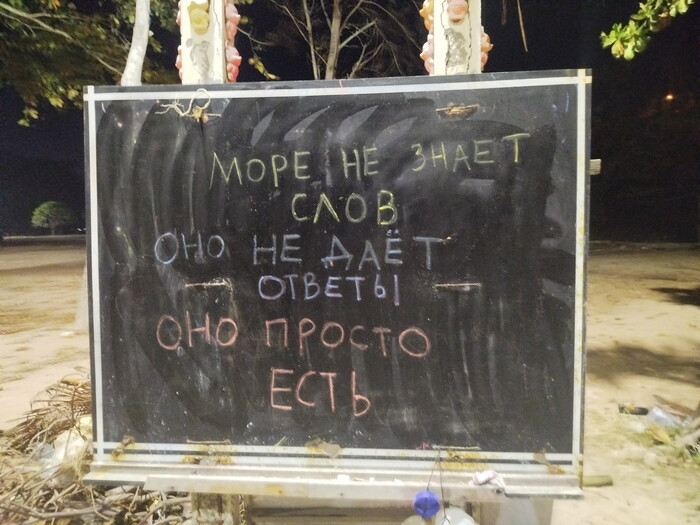 МОРЕ НЕ ЗНАЕТ
СЛОВ
ОНО НЕ ДАЁТ
ОТВЕТЫ
ОНО ПРОСТО
ЕСТЬ